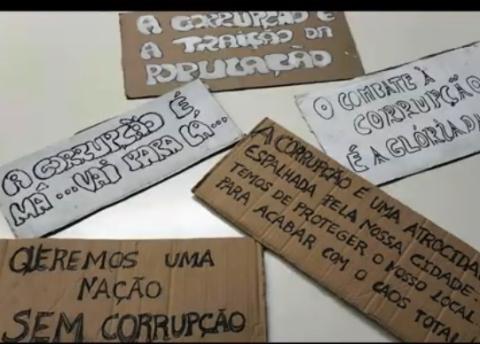 A CORRUPÇÃO É
A TRAIÇÃO DA
POPULAÇÃO
A CORRUPÇÃO É
MÁ...VAI PARA LÁ...
O COMBATE À
CORRUPÇÃO
É A GLÓRIA DA
A CORRUPÇÃO É UMA ATROCIDA
ESPALHADA PELA NOSSA CIDADE.
TEMOS DE PROTEGER O NOSSO LOCAL
PARA ACABAR COM O CAOS TOTAL
QUEREMOS UMA
NAÇÃO
SEM CORRUPÇÃO